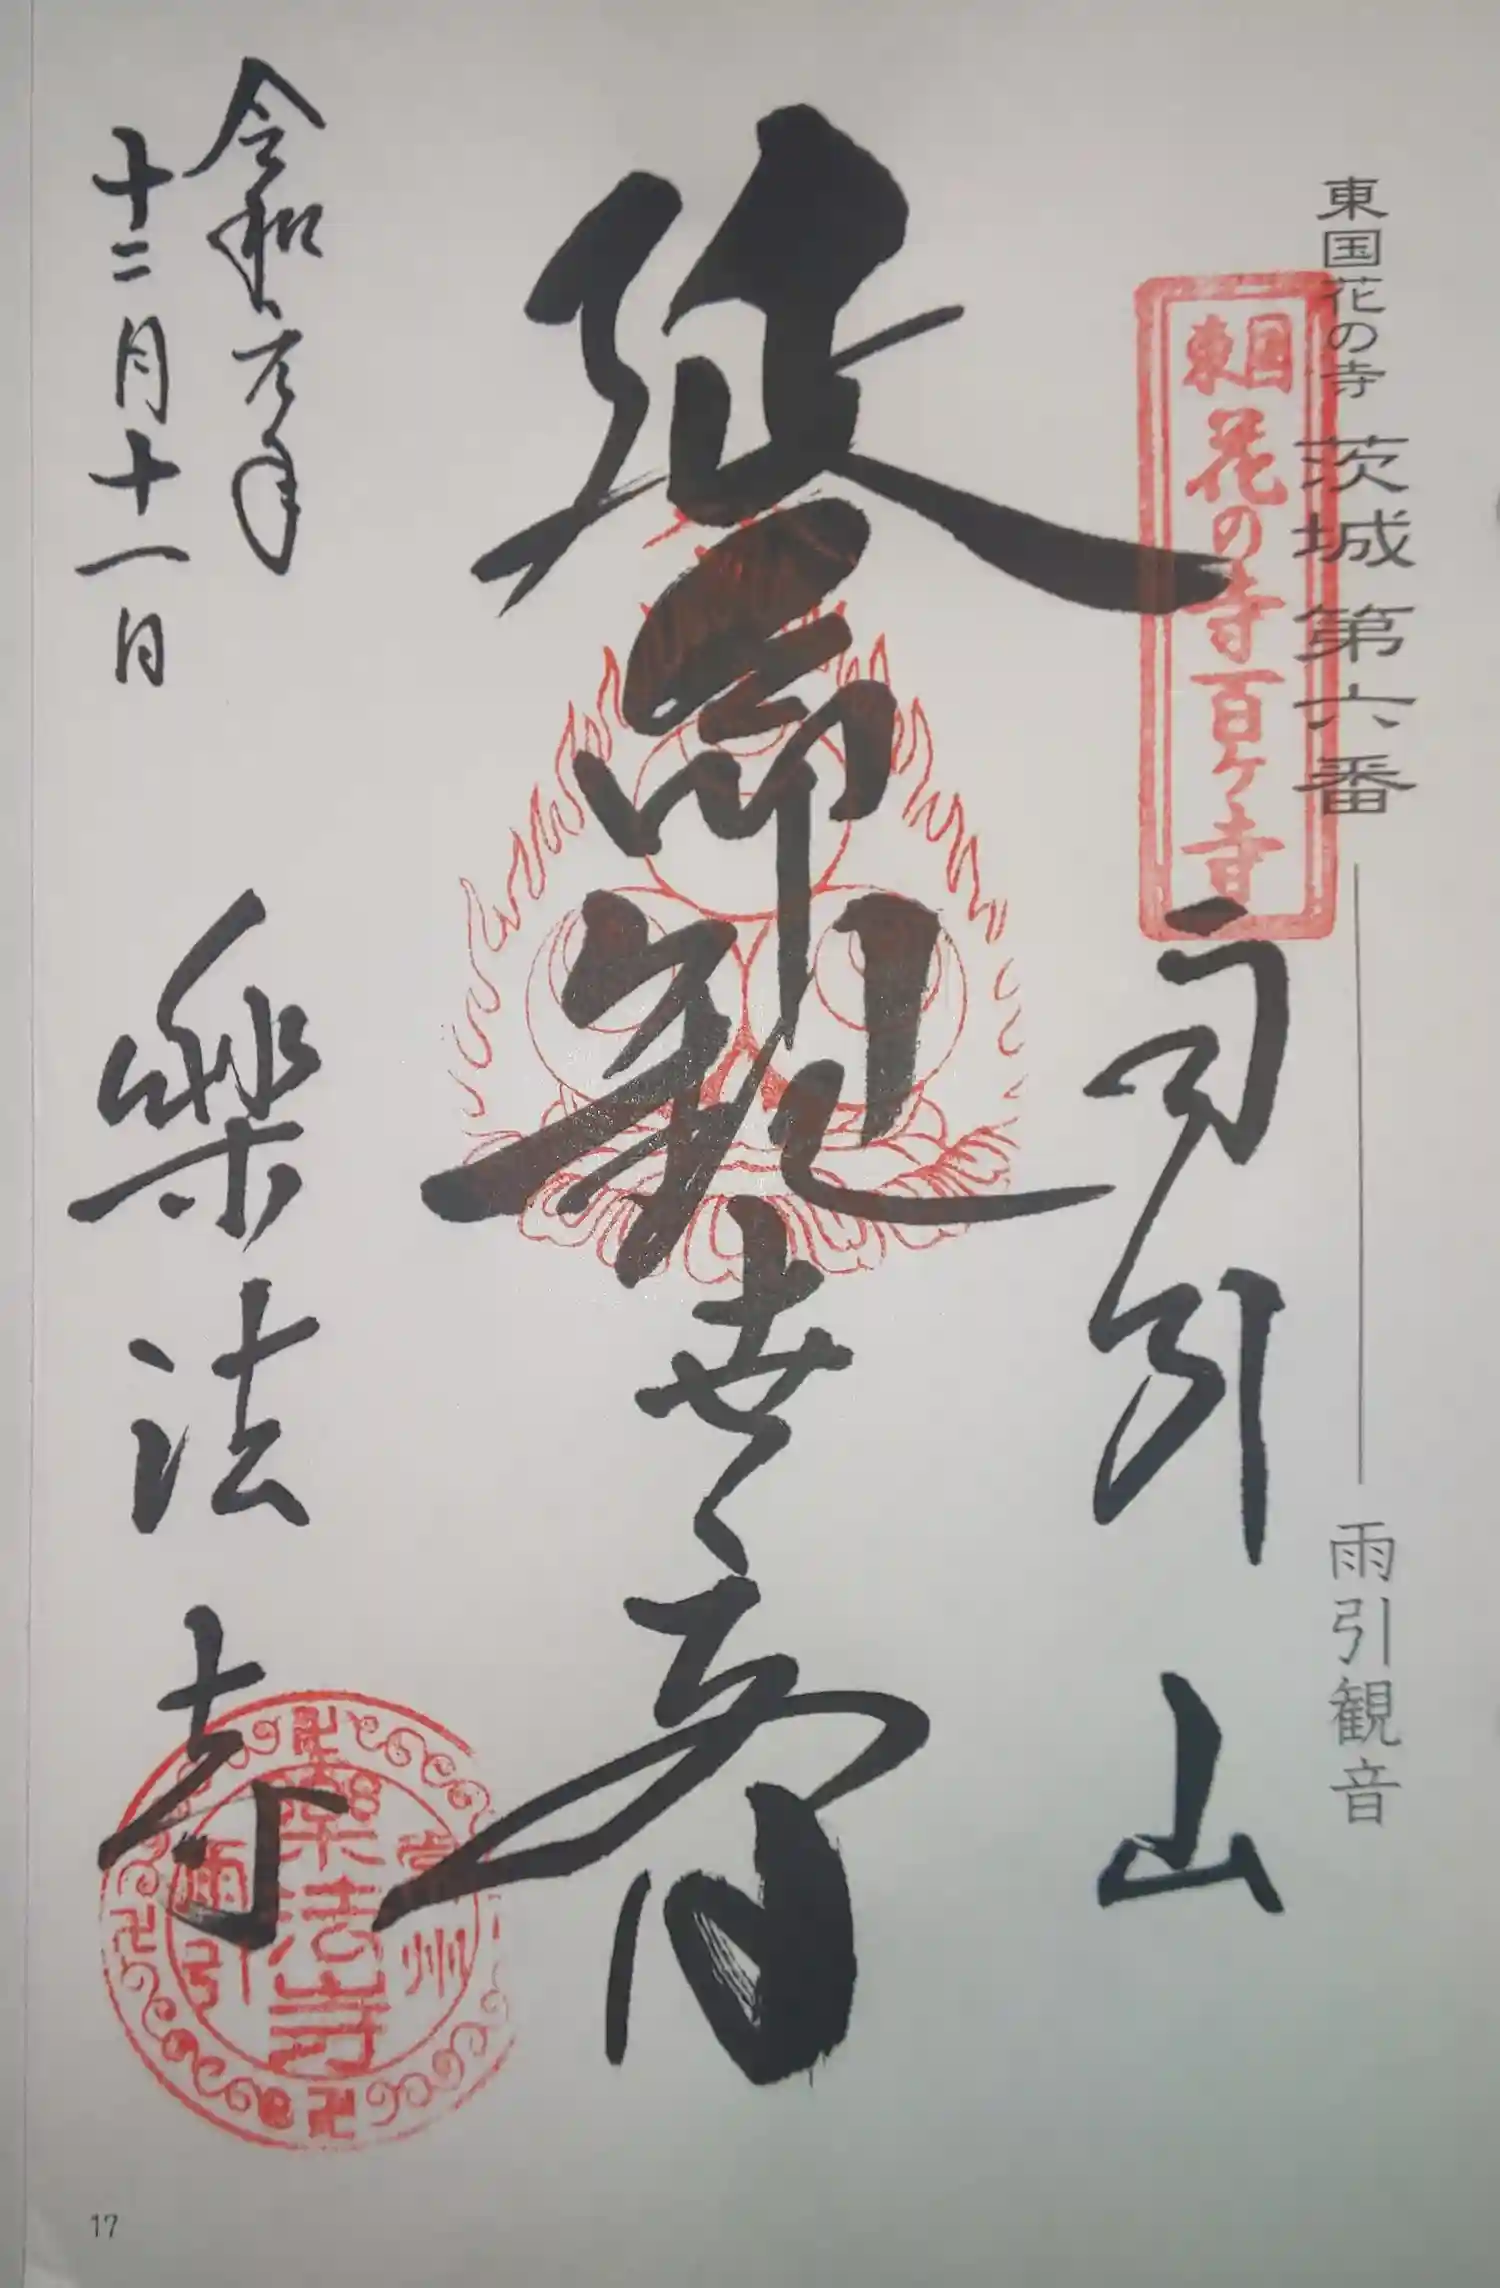 東国花の寺 茨城第六番 雨引観音
東国
花の寺百ヶ寺
雨引山
延命観世音
令和元年
十二月十一日
樂法寺
樂法寺
州
雨引
17